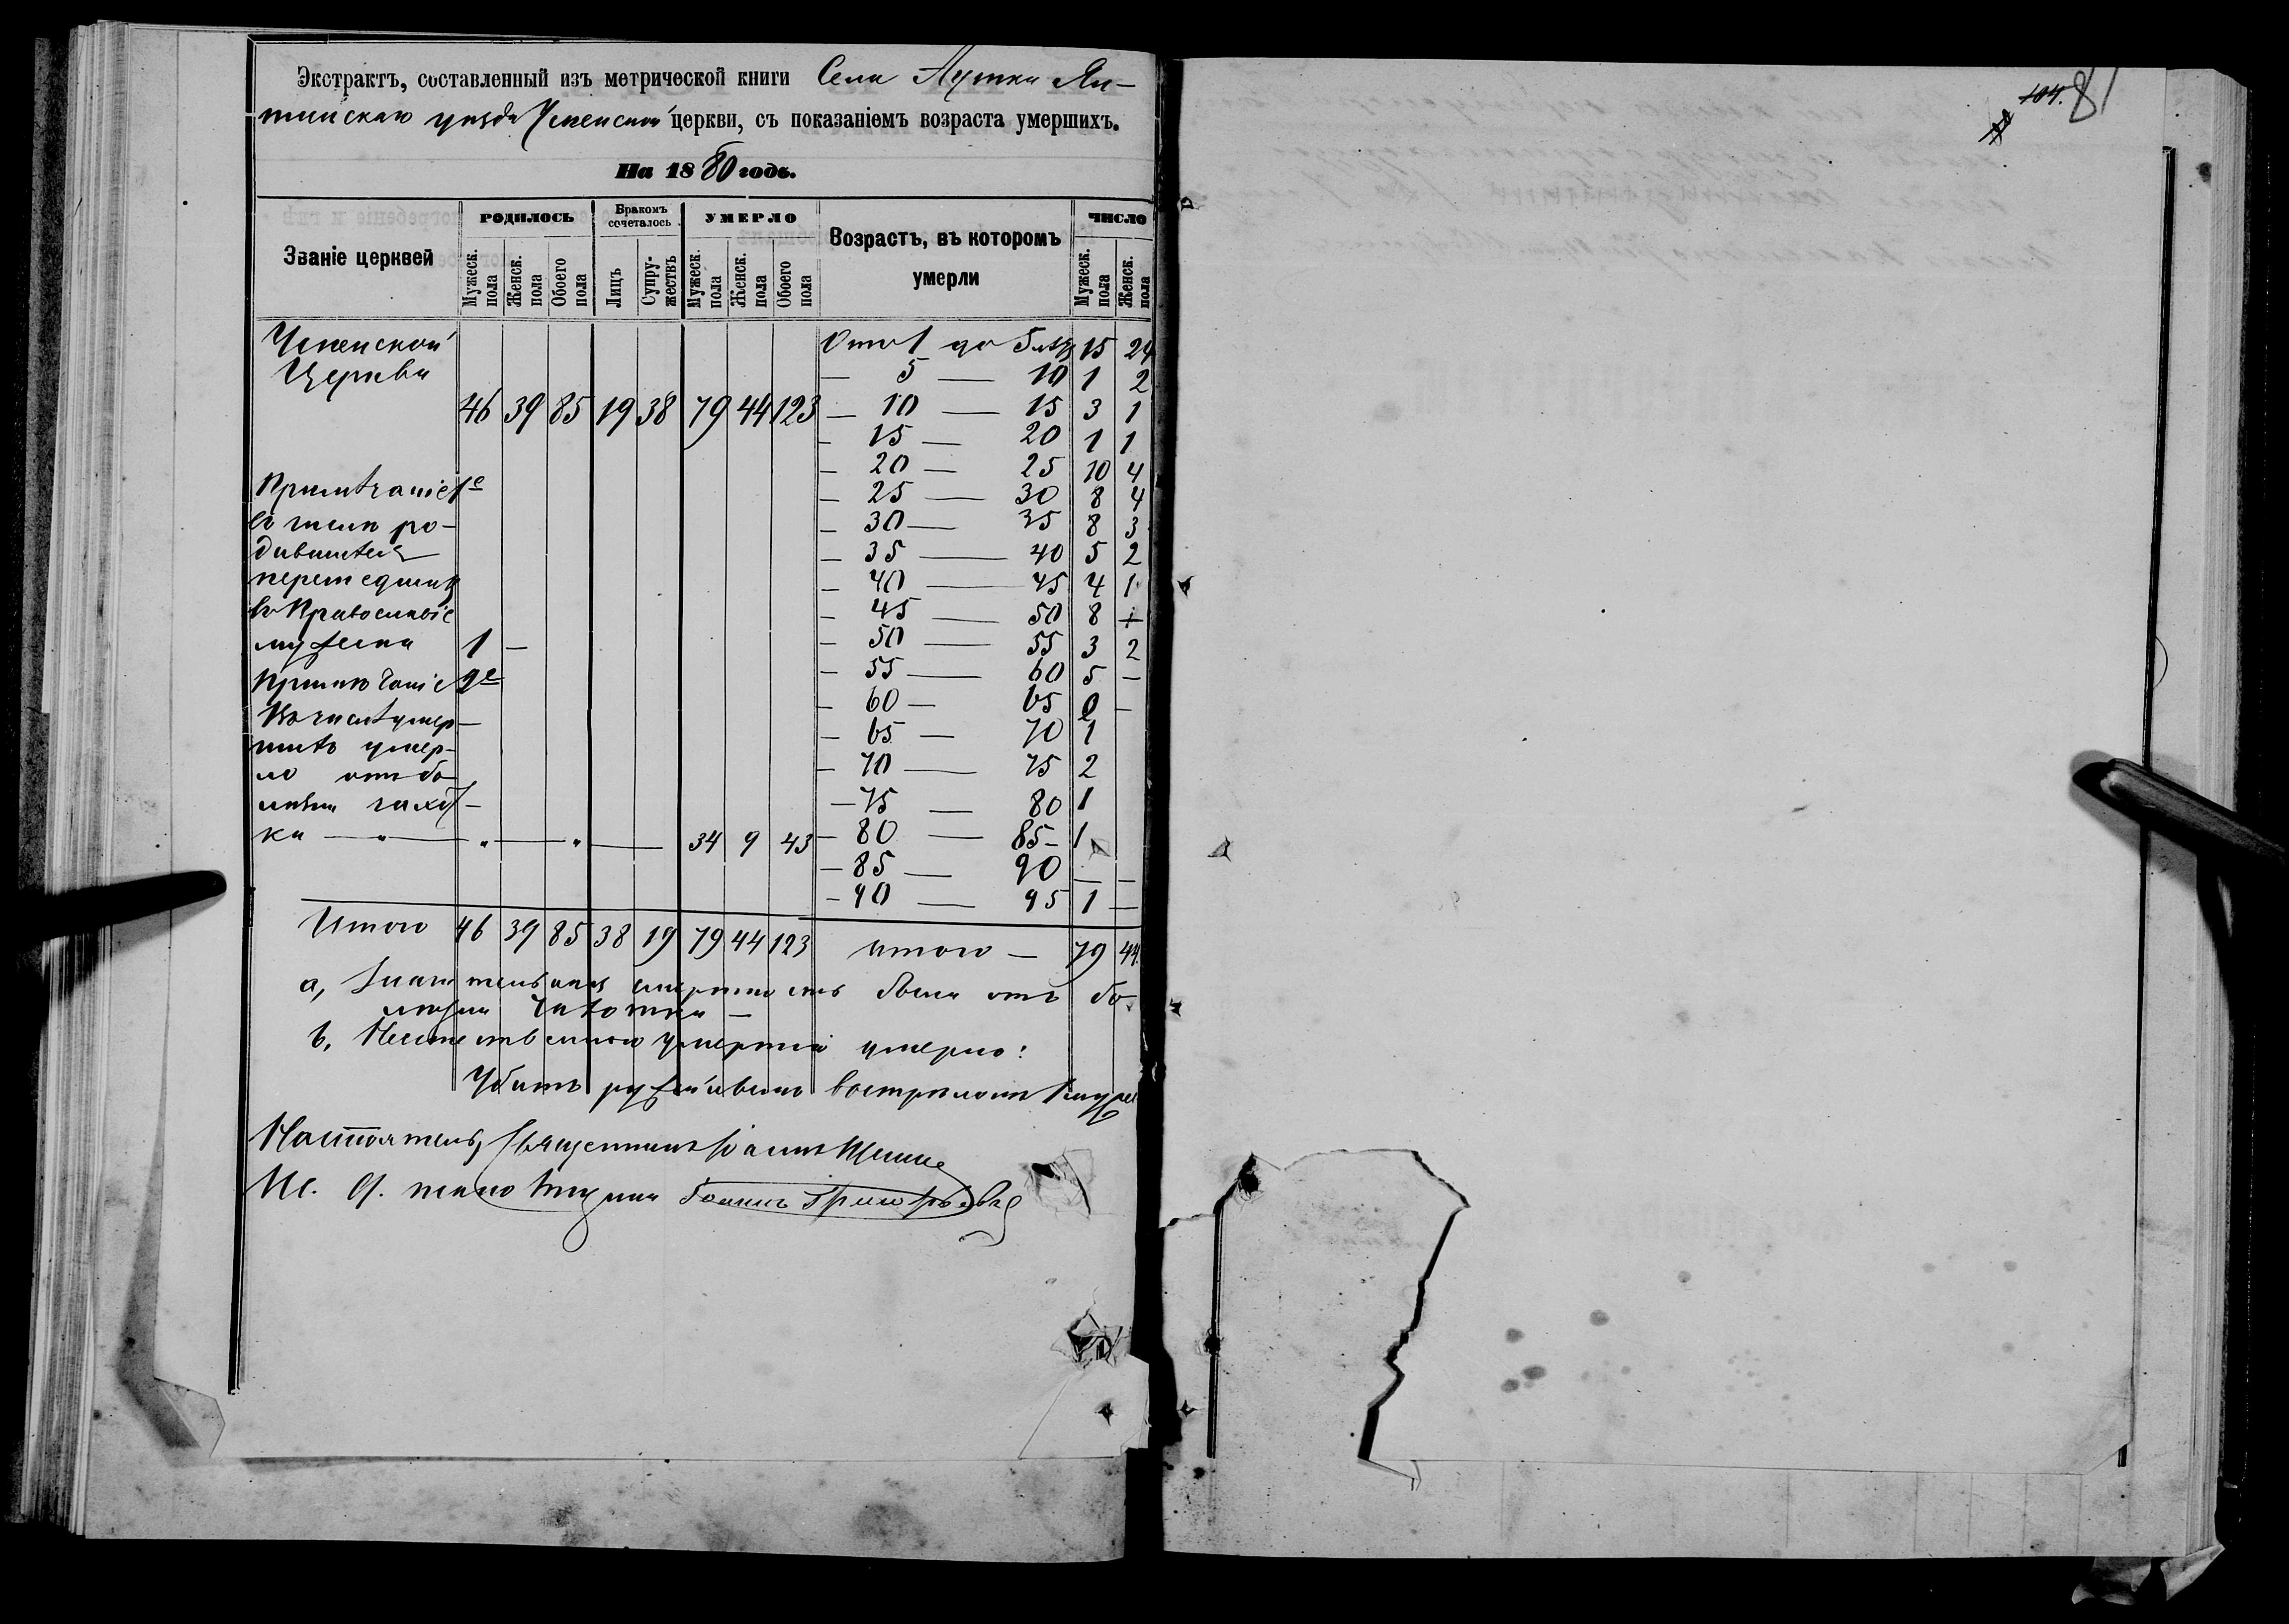 Экстрактъ, составленный изъ метрической книги Села Аутки Ял-
тинскаго уѣзда Успенской церкви, съ показаніемъ возраста умершихъ.
На 1880 годъ.
Званіе церквей
РОДИЛОСЬ
Бракомъ сочеталось
УМЕРЛО
Возрастъ, въ которомъ умерли
ЧИСЛО
Мужеск. пола Женск. пола Обоего пола Лицъ Супружествъ Мужеск. пола Женск. пола Обоего пола Мужеск. пола Женск. пола
Успенской
Церкви
46 39 85 19 38 79 44 123
Отъ 1 до 5 лѣтъ 15 24
— 5 — 10 1 2
— 10 — 15 3 1
— 15 — 20 1 1
— 20 — 25 10 4
— 25 — 30 8 4
— 30 — 35 8 3
— 35 — 40 5 2
— 40 — 45 4 1
— 45 — 50 8
— 50 — 55 3 2
— 55 — 60 5 —
— 60 — 65 —
— 65 — 70 1
— 70 — 75 2
— 75 — 80 1
— 80 — 85 — 1
— 85 — 90 — —
— 90 — 95 1 —
Примѣчаніе 1е
въ числѣ ро-
дившихся
перешедшихъ
въ Православіе
мужеска 1 —
Примѣчаніе 2е
Въ числѣ умер-
шихъ умер-
ло отъ бо-
лѣзни чахот-
ки — „ — „ — „ — 34 9 43
Итого 46 39 85 38 19 79 44 123 итого — 79 44.
а, Значительная смертность была отъ бо-
лѣзни чахотки —
б, Неестественною смертію умерло:
Убитъ ружейнымъ выстрѣломъ 1 муж.
Настоятель, Священникъ Іоаннъ
И. д. псаломщика Григорьевъ
104. 81